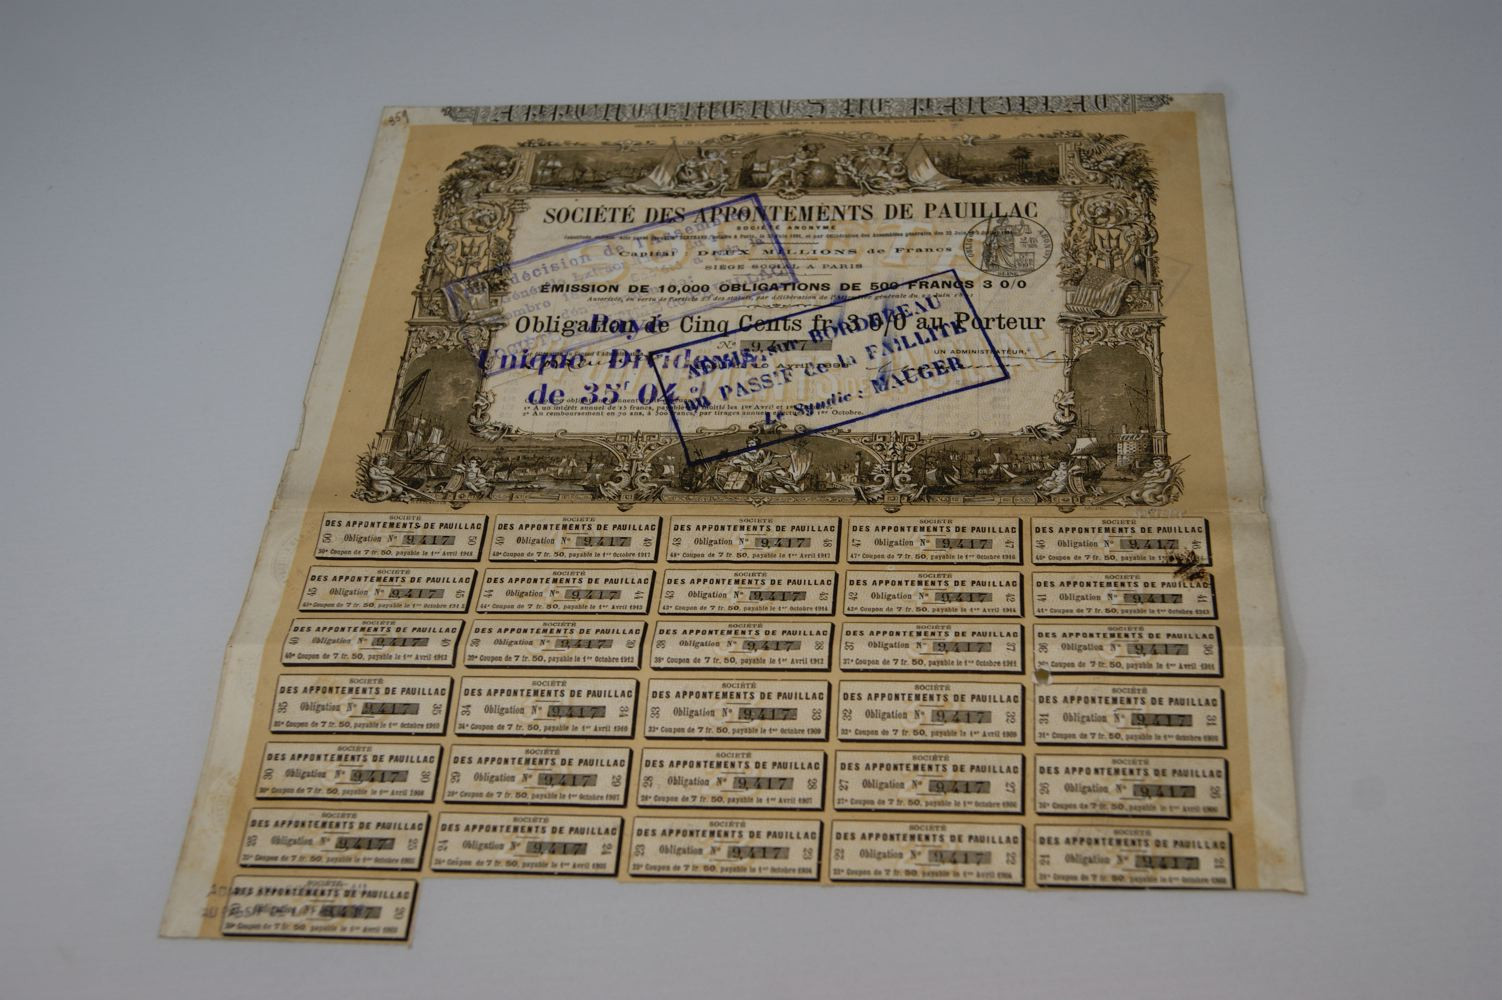 359
APPONTEMENTS DE PAUILLAC
SOCIÉTÉ DES APPONTEMENTS DE PAUILLAC
SOCIÉTÉ ANONYME
Capital : DEUX MILLIONS de Francs
SIÈGE SOCIAL A PARIS
ÉMISSION DE 10,000 OBLIGATIONS DE 500 FRANCS 3 0/0
Autorisée, en vertu de l'article des statuts, par délibération de générale du Juin
Obligation de Cinq Cents fr. 3 0/0 au Porteur
Nº 9,417
UN ADMINISTRATEUR,
1º A un intérêt annuel de 15 francs, payable par moitié les 1er Avril et 1er
2º Au remboursement en 70 ans, à 500 francs, par tirages annuels 1er Octobre.
décision de l'Assemblée
Générale
Payé
Unique Dividende
de 35f 04
ADMIS sur BORDEREAU
au PASSIF de la FAILLITE
Le Syndic : MAUGER
SOCIÉTÉ
DES APPONTEMENTS DE PAUILLAC
50 Obligation Nº 9,417 50
50e Coupon de 7 fr. 50, payable le 1er Avril 1918
SOCIÉTÉ
DES APPONTEMENTS DE PAUILLAC
49 Obligation Nº 9,417 49
49e Coupon de 7 fr. 50, payable le 1er Octobre 1917
SOCIÉTÉ
DES APPONTEMENTS DE PAUILLAC
48 Obligation Nº 9,417 48
48e Coupon de 7 fr. 50, payable le 1er Avril 1917
SOCIÉTÉ
DES APPONTEMENTS DE PAUILLAC
47 Obligation Nº 9,417 47
47e Coupon de 7 fr. 50, payable le 1er Octobre 1916
SOCIÉTÉ
DES APPONTEMENTS DE PAUILLAC
46 Obligation Nº 9,417 46
46e Coupon de 7 fr. 50, payable le 1er
SOCIÉTÉ
DES APPONTEMENTS DE PAUILLAC
45 Obligation Nº 9,417 45
45e Coupon de 7 fr. 50, payable le 1er Octobre 1915
SOCIÉTÉ
DES APPONTEMENTS DE PAUILLAC
44 Obligation Nº 9,417 44
44e Coupon de 7 fr. 50, payable le 1er Avril 1915
SOCIÉTÉ
DES APPONTEMENTS DE PAUILLAC
43 Obligation Nº 9,417 43
43e Coupon de 7 fr. 50, payable le 1er Octobre 1914
SOCIÉTÉ
DES APPONTEMENTS DE PAUILLAC
42 Obligation Nº 9,417 42
42e Coupon de 7 fr. 50, payable le 1er Avril 1914
SOCIÉTÉ
DES APPONTEMENTS DE PAUILLAC
41 Obligation Nº 9,417 41
41e Coupon de 7 fr. 50, payable le 1er Octobre 1913
SOCIÉTÉ
DES APPONTEMENTS DE PAUILLAC
40 Obligation Nº 9,417 40
40e Coupon de 7 fr. 50, payable le 1er Avril 1913
SOCIÉTÉ
DES APPONTEMENTS DE PAUILLAC
39 Obligation Nº 9,417 39
39e Coupon de 7 fr. 50, payable le 1er Octobre 1912
SOCIÉTÉ
DES APPONTEMENTS DE PAUILLAC
38 Obligation Nº 9,417 38
38e Coupon de 7 fr. 50, payable le 1er Avril 1912
SOCIÉTÉ
DES APPONTEMENTS DE PAUILLAC
37 Obligation Nº 9,417 37
37e Coupon de 7 fr. 50, payable le 1er Octobre 1911
SOCIÉTÉ
DES APPONTEMENTS DE PAUILLAC
36 Obligation Nº 9,417 36
Coupon de 7 fr. 50, payable le 1er Avril 1911
SOCIÉTÉ
DES APPONTEMENTS DE PAUILLAC
35 Obligation Nº 9,417 35
35e Coupon de 7 fr. 50, payable le 1er Octobre 1910
SOCIÉTÉ
DES APPONTEMENTS DE PAUILLAC
34 Obligation Nº 9,417 34
34e Coupon de 7 fr. 50, payable le 1er Avril 1910
SOCIÉTÉ
DES APPONTEMENTS DE PAUILLAC
33 Obligation Nº 9,417 33
33e Coupon de 7 fr. 50, payable le 1er Octobre 1909
SOCIÉTÉ
DES APPONTEMENTS DE PAUILLAC
32 Obligation Nº 9,417 32
32e Coupon de 7 fr. 50, payable le 1er Avril 1909
SOCIÉTÉ
DES APPONTEMENTS DE PAUILLAC
31 Obligation Nº 9,417 31
31e Coupon de 7 fr. 50, payable le 1er Octobre 1908
SOCIÉTÉ
DES APPONTEMENTS DE PAUILLAC
30 Obligation Nº 9,417 30
30e Coupon de 7 fr. 50, payable le 1er Avril 1908
SOCIÉTÉ
DES APPONTEMENTS DE PAUILLAC
29 Obligation Nº 9,417 29
29e Coupon de 7 fr. 50, payable le 1er Octobre 1907
SOCIÉTÉ
DES APPONTEMENTS DE PAUILLAC
28 Obligation Nº 9,417 28
28e Coupon de 7 fr. 50, payable le 1er Avril 1907
SOCIÉTÉ
DES APPONTEMENTS DE PAUILLAC
27 Obligation Nº 9,417 27
27e Coupon de 7 fr. 50, payable le 1er Octobre 1906
SOCIÉTÉ
DES APPONTEMENTS DE PAUILLAC
26 Obligation Nº 9,417 26
26e Coupon de 7 fr. 50, payable le 1er Avril 1906
SOCIÉTÉ
DES APPONTEMENTS DE PAUILLAC
25 Obligation Nº 9,417 25
25e Coupon de 7 fr. 50, payable le 1er Octobre 1905
SOCIÉTÉ
DES APPONTEMENTS DE PAUILLAC
24 Obligation Nº 9,417 24
24e Coupon de 7 fr. 50, payable le 1er Avril 1905
SOCIÉTÉ
DES APPONTEMENTS DE PAUILLAC
23 Obligation Nº 9,417 23
23e Coupon de 7 fr. 50, payable le 1er Octobre 1904
SOCIÉTÉ
DES APPONTEMENTS DE PAUILLAC
22 Obligation Nº 9,417 22
22e Coupon de 7 fr. 50, payable le 1er Avril 1904
SOCIÉTÉ
DES APPONTEMENTS DE PAUILLAC
21 Obligation Nº 9,417 21
21e Coupon de 7 fr. 50, payable le 1er Octobre 1903
SOCIÉTÉ
DES APPONTEMENTS DE PAUILLAC
Obligation Nº 9,417 20
20e Coupon de 7 fr. 50, payable le 1er Avril 1903
AU PASSIF DE LA